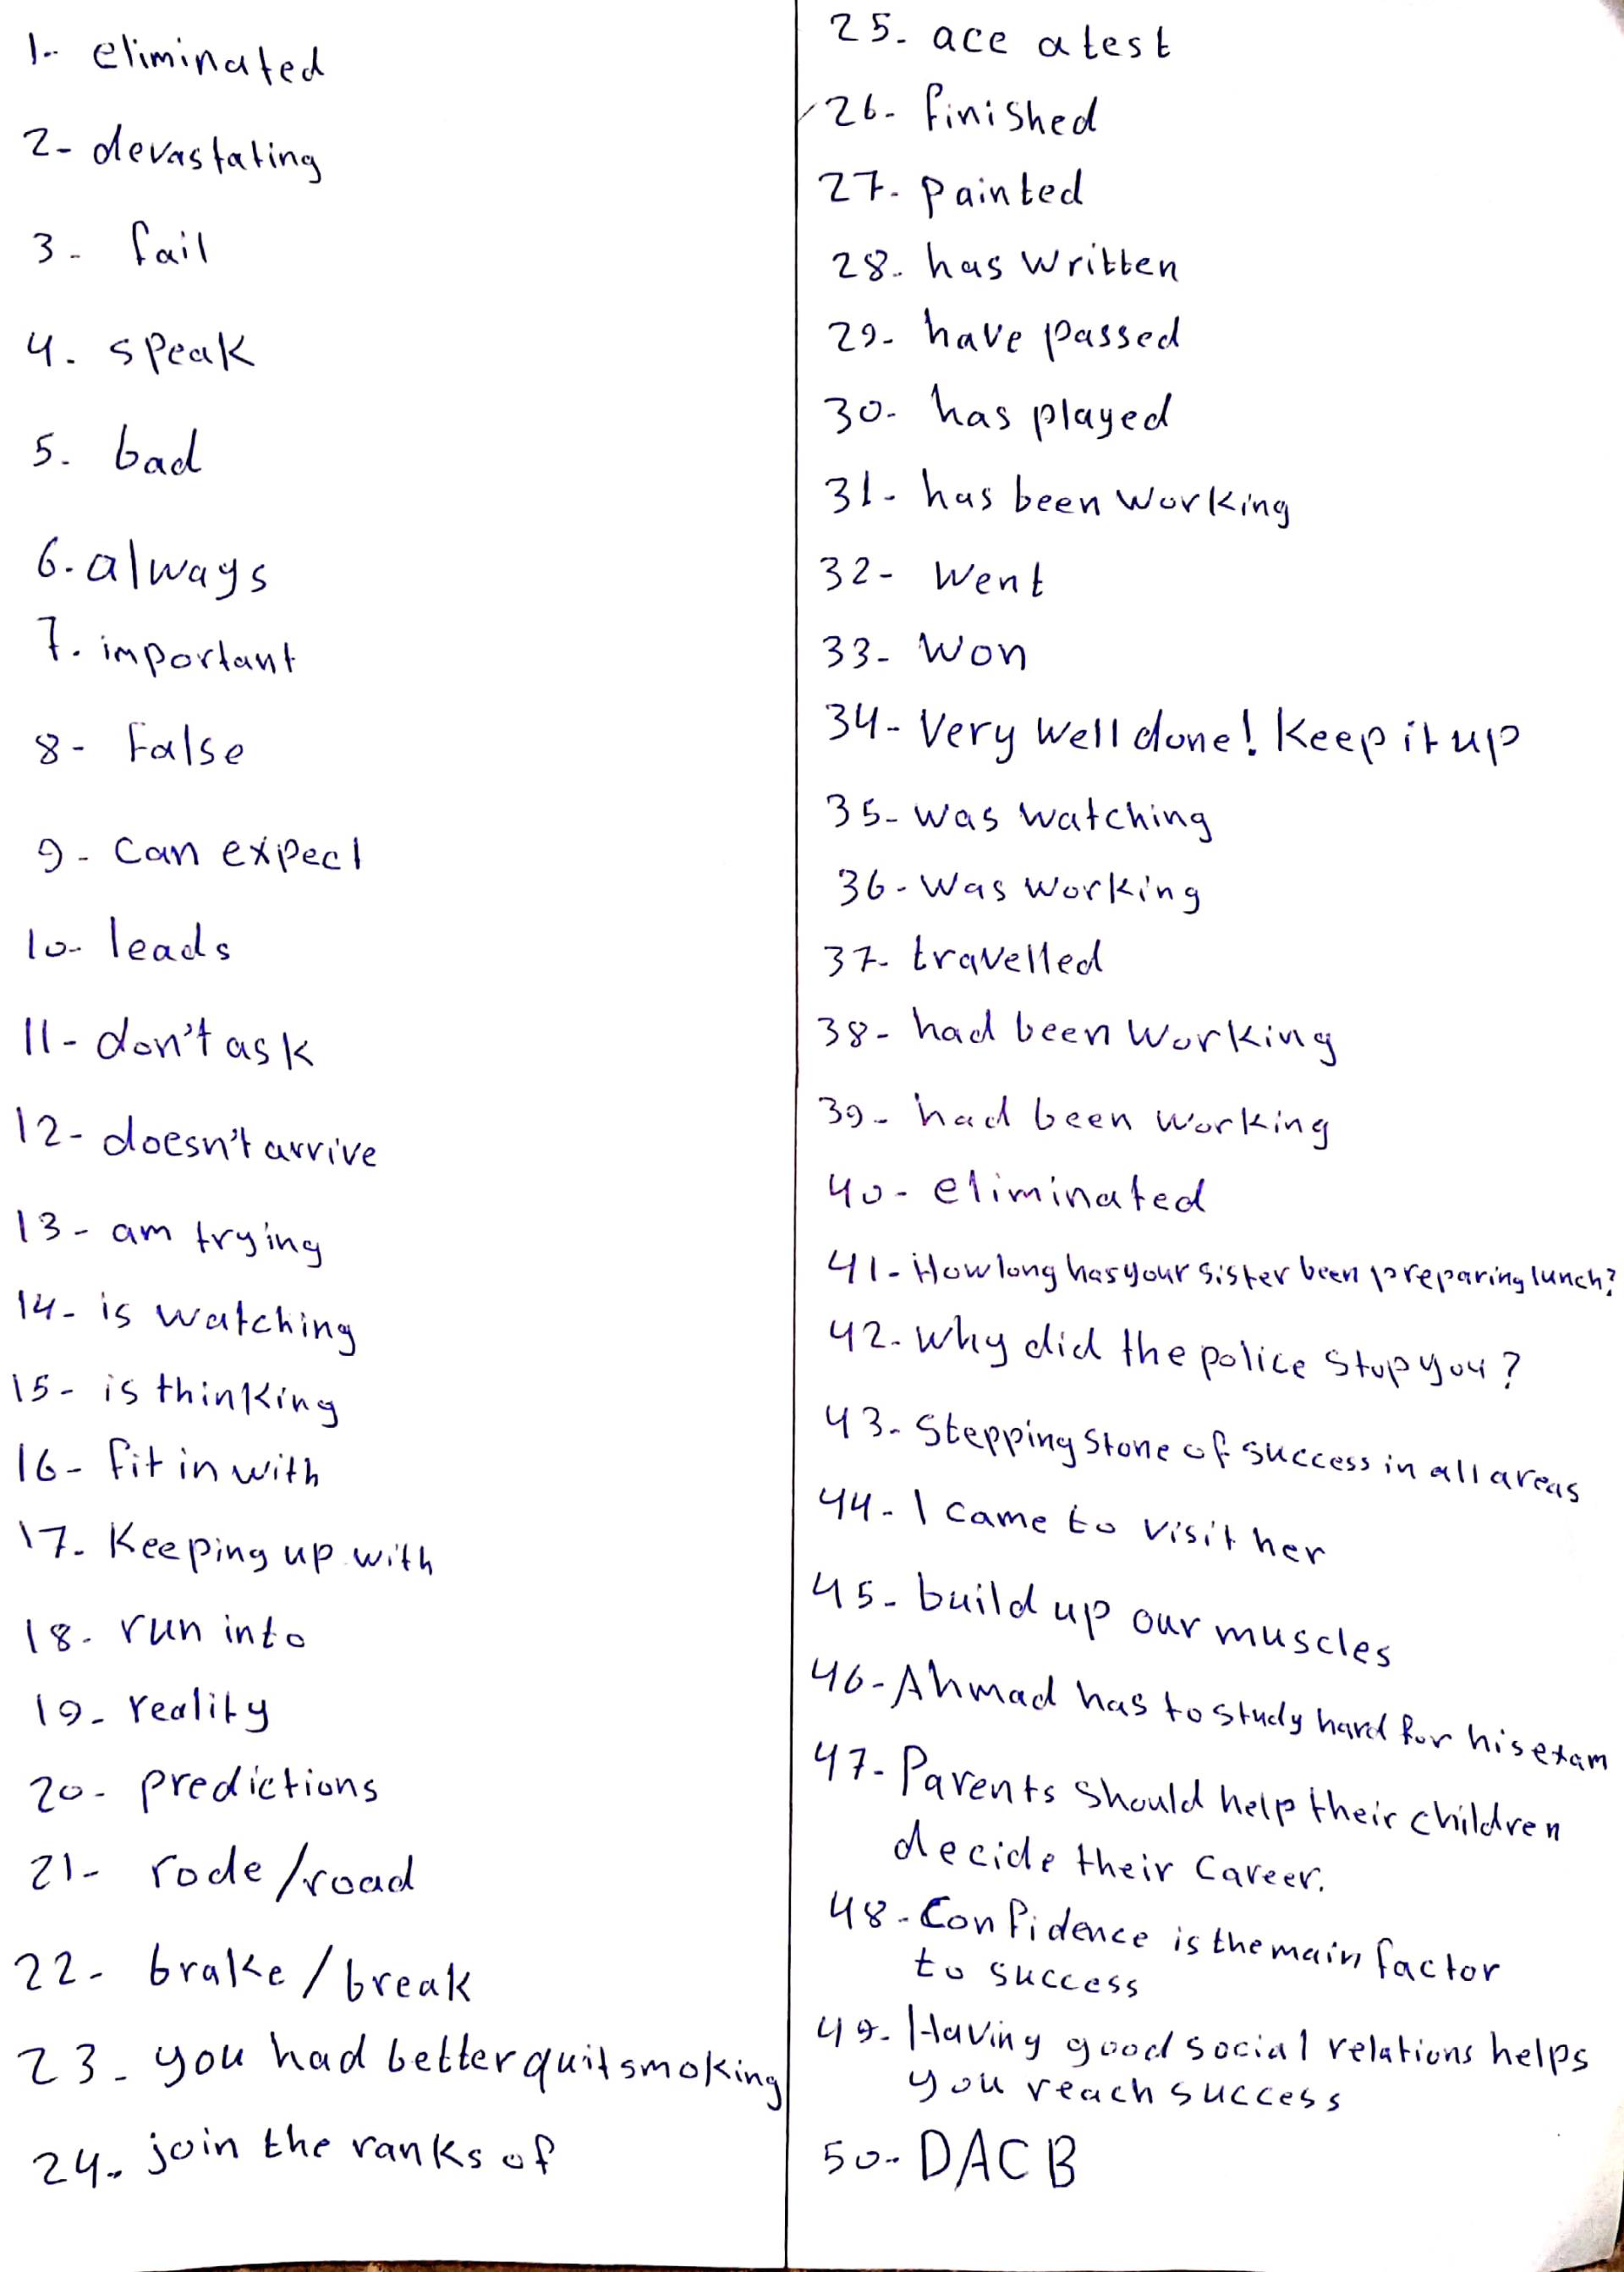 1- eliminated
2- devastating
3- fail
4- speak
5- bad
6- always
7- important
8- False
9- can expect
10- leads
11- don't ask
12- doesn't arrive
13- am trying
14- is watching
15- is thinking
16- fit in with
17- Keeping up with
18- run into
19- reality
20- predictions
21- rode/road
22- brake/break
23- you had better quit smoking
24- join the ranks of
25- ace a test
26- finished
27- painted
28- has written
29- have passed
30- has played
31- has been working
32- went
33- won
34- Very well done! Keep it up
35- was watching
36- was working
37- travelled
38- had been working
39- had been working
40- eliminated
41- How long has your sister been preparing lunch?
42- why did the police stop you?
43- Stepping stone of success in all areas
44- I came to visit her
45- build up our muscles
46- Ahmad has to study hard for his exam
47- Parents should help their children
decide their career.
48- Confidence is the main factor
to success
49- Having good social relations helps
you reach success
50- DACB